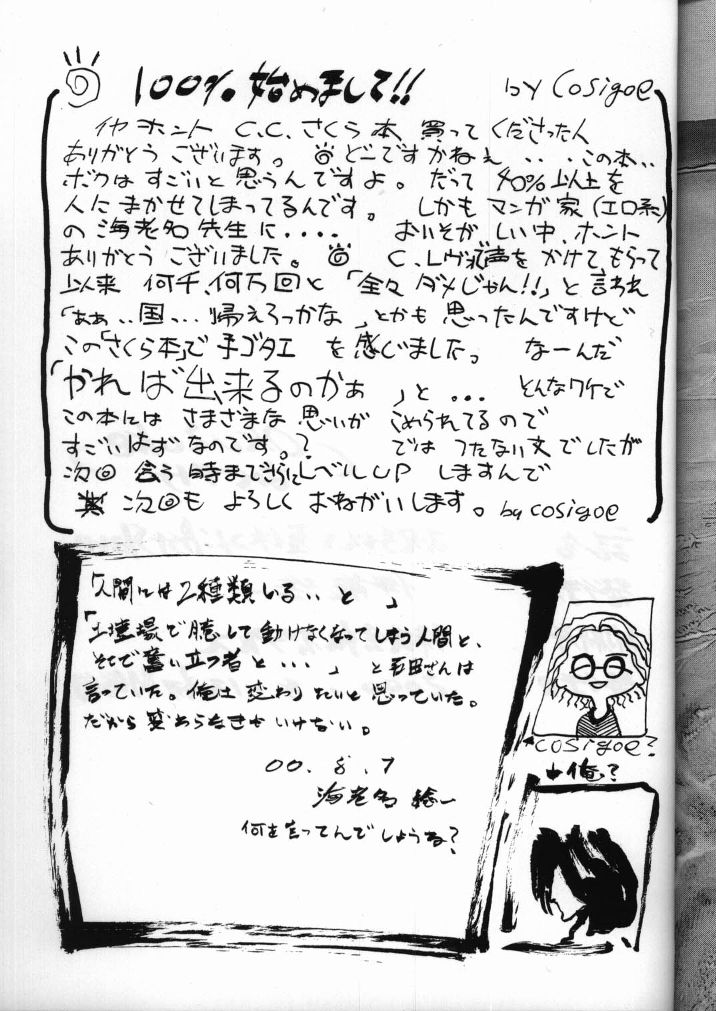 100% 始めまして!! by Cosigoe
イヤ ホント C.C.さくら本 買ってくださった人
ありがとう ございます。 どーですかねぇ ・・・この本・・
ボクは すごいと 思うんですよ。 だって 40%以上を
人に まかせてしまってるんです。 しかも マンガ家(エロ系)
の 海老名 先生に・・・・ おいそがしい中、ホント
ありがとう ございました。 C.Lヴ 声を かけて もらって
以来 何千、何万回と 「全々 ダメじゃん!!」と 言われ
「ああ・・国・・・帰えろっかな」とかも 思ったんですけど
この「さくら本」で 手ゴタエ を感じました。 なーんだ
「やれば出来るのかぁ」と・・・ とんなワケで
この本には さまざまな 思いが こめられてるので
すごいはず なのです。? では つたない文でしたが
次回 会う時まで さらに レベルUP しますんで
次回も よろしく おねがいします。 by cosigoe
「人間には2種類いる・・と」
「土壇場で臆して動けなくなってしまう人間と、
そこで奮い立つ者と・・・」 と 平田さんは
言っていた。俺は 変わりたいと 思っていた。
だから 変わらなきゃいけない。
00.8.7
海老名 総一
何を言ってんでしょうね?
cosigoe?
俺っ?